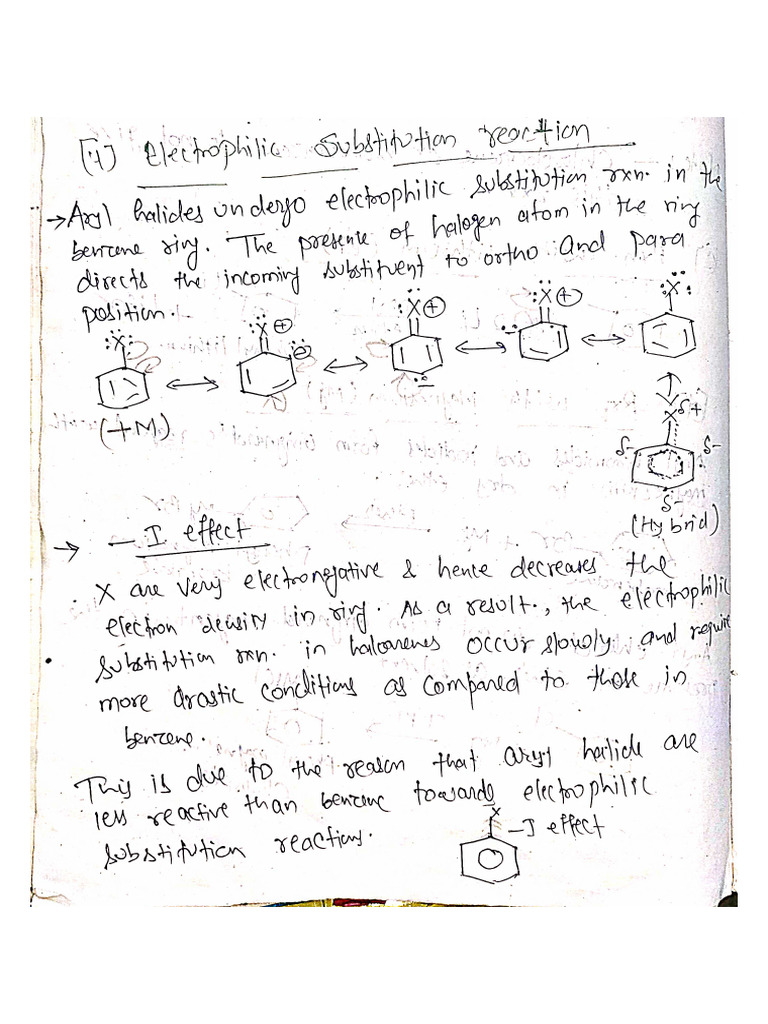 (i) Electrophilic Substitution reaction
→ Aryl halides undergo electrophilic substitution rxn. in the
benzene ring. The presence of halogen atom in the ring
directs the incoming substituent to ortho and para
position.
:Ẍ: :X⊕ :X⊕ :X⊕ :Ẍ:
⊖
(+M)
↔ ↔ ↔ ↔
X δ+
δ- δ-
δ-
(Hybrid)
→ – I effect
X are very electronegative & hence decreases the
electron density in ring. As a result., the electrophilic
substitution rxn. in haloarenes occur slowly and require
more drastic conditions as compared to those in
benzene.
This is due to the reason that aryl hailide are
less reactive than benzene towards electrophilic
substitution reactions.
X
–I effect